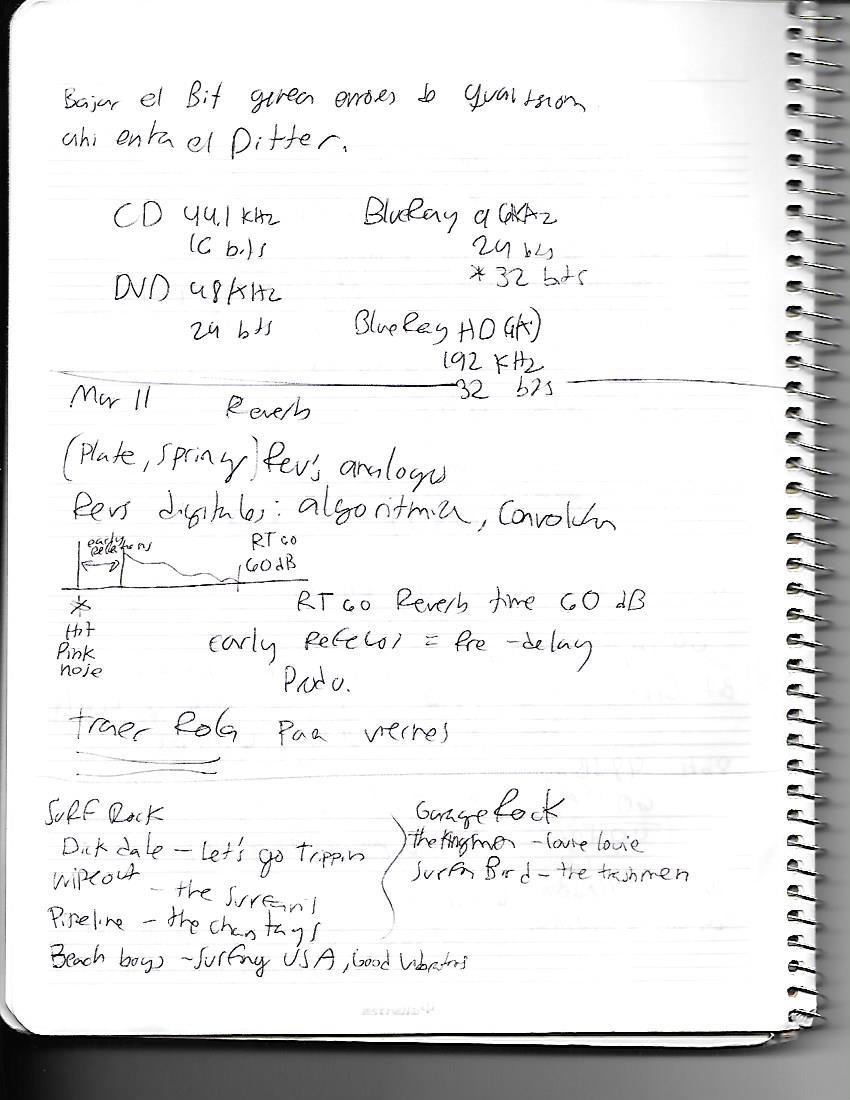 Bajar el Bit genera errores
ahi entra el Ditter.
CD 44.1 KHz
16 bits
DVD 48 KHz
24 bits
BlueRay 96KHz
24 bits
* 32 bits
BlueRay HD (4K)
192 KHz
32 bits
Mar 11 Reverb
(Plate, Spring) Rev's analogos
Revs digitales: algoritmica, Convolución
early
RT 60
60 dB
*
Hit
Pink
noise
RT 60 Reverb time 60 dB
early = Pre-delay
traer Rola Para viernes
Surf Rock
Dick dale - Let's go Trippin
Wipeout - the
Pipeline - the chantays
Beach boys - Surfing USA, Good Vibrations
Garage Rock
the Kingsmen - Louie louie
Surfin Bird - the trashmen